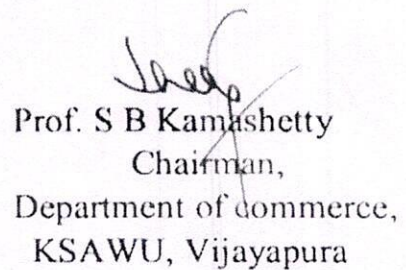 Prof. S B Kamashetty
Chairman,
Department of commerce,
KSAWU, Vijayapura